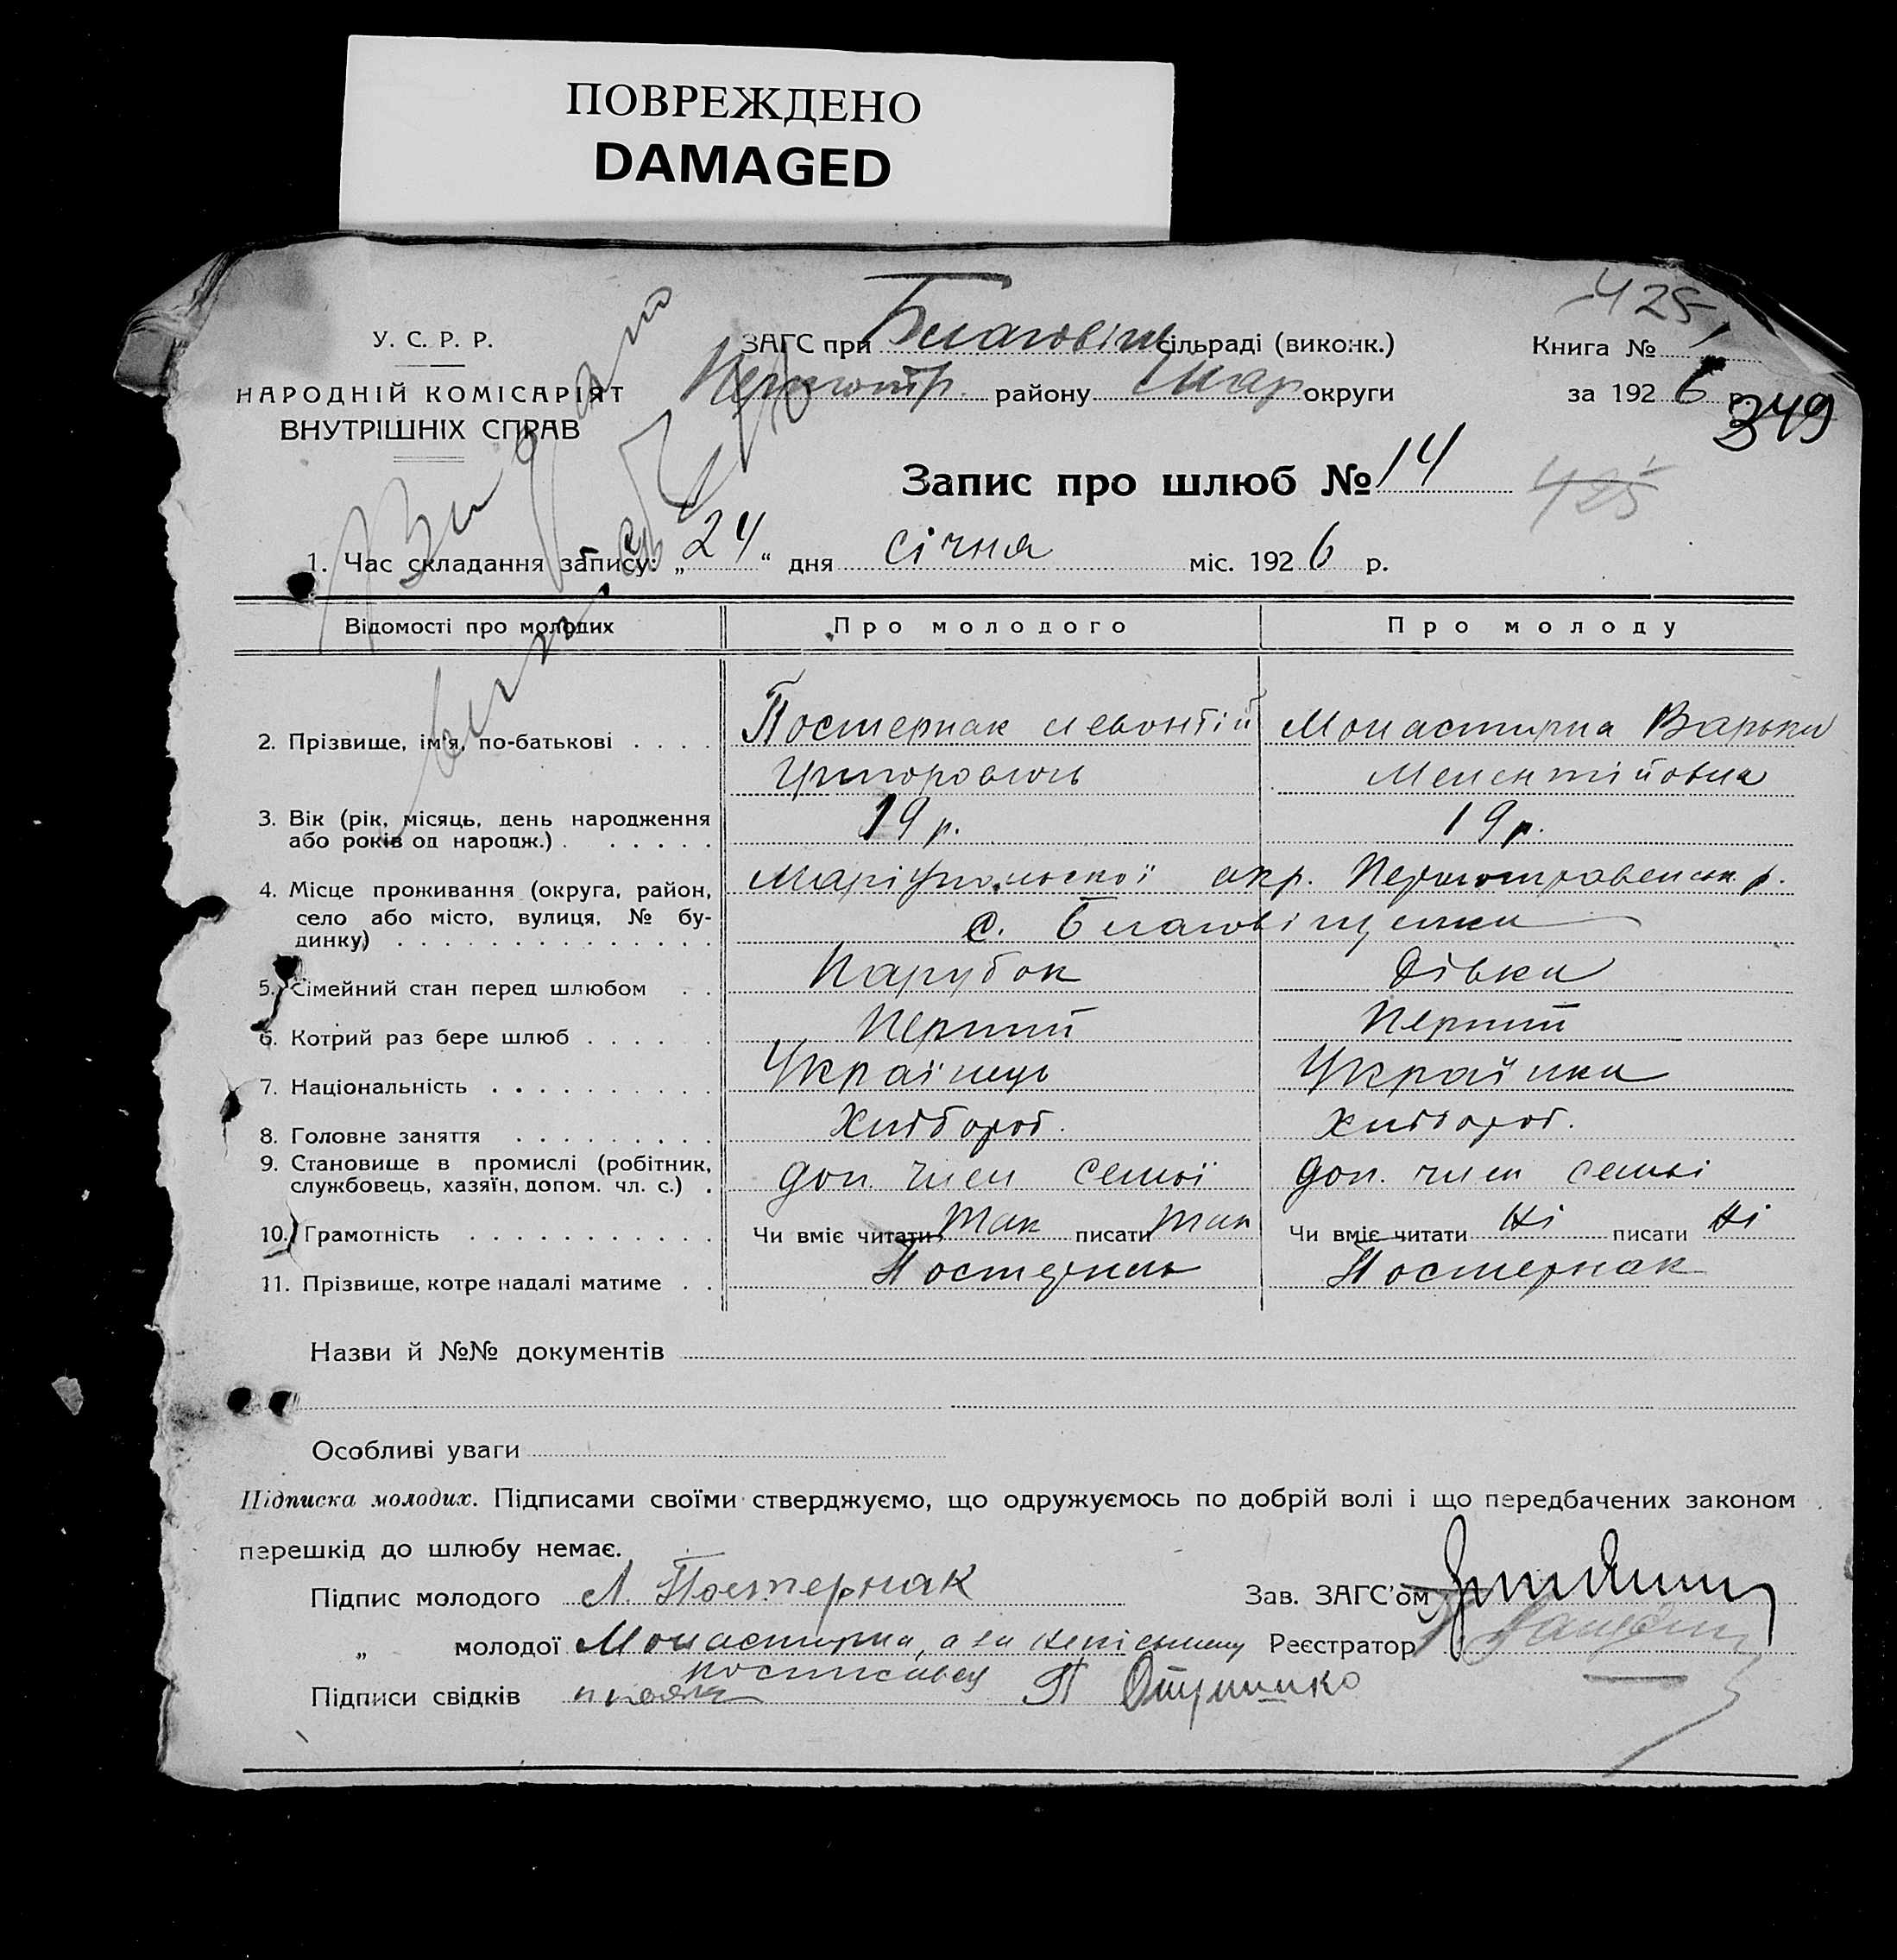 ПОВРЕЖДЕНО
DAMAGED
425
У. С. Р. Р.
НАРОДНІЙ КОМІСАРІЯТ
ВНУТРІШНІХ СПРАВ
ЗАГС при Благовіщ сільраді (виконк.)
району Мар округи
Книга №
за 1926 р.
349
Запис про шлюб № 14
425
Видано
1. Час складання запису: „24“ дня січня міс. 1926 р.
Відомості про молодих Про молодого Про молоду
2. Прізвище, ім'я, по-батькові . . . . Постернак Левонтій Монастирна Варька
Григорович Мелентійовна
3. Вік (рік, місяць, день народження
або років од народж.) . . . . . . 19 р. 19 р.
4. Місце проживання (округа, район, Маріупольської окр. Першотравенськ р.
село або місто, вулиця, № бу-
динку) . . . . . . . . . . . . . . с. Благовіщенка
5. Сімейний стан перед шлюбом . . Парубок Дівка
6. Котрий раз бере шлюб . . . . . . Перший Перший
7. Національність . . . . . . . . . Українець Українка
8. Головне заняття . . . . . . . . . Хлібороб. Хлібороб.
9. Становище в промислі (робітник,
службовець, хазяїн, допом. чл. с.) . доп. член семьї доп. член семьі
10. Грамотність . . . . . . . . . . . Чи вміє читати Так писати Так Чи вміє читати Ні писати Ні
11. Прізвище, котре надалі матиме . . Постернак Постернак
Назви й №№ документів
Особливі уваги
Підписка молодих. Підписами своїми стверджуємо, що одружуємось по добрій волі і що передбачених законом
перешкід до шлюбу немає.
Підпис молодого Л. Постернак Зав. ЗАГС'ом
„ молодої Монастирна, а за неписьмену Реєстратор
росписався
Підписи свідків П